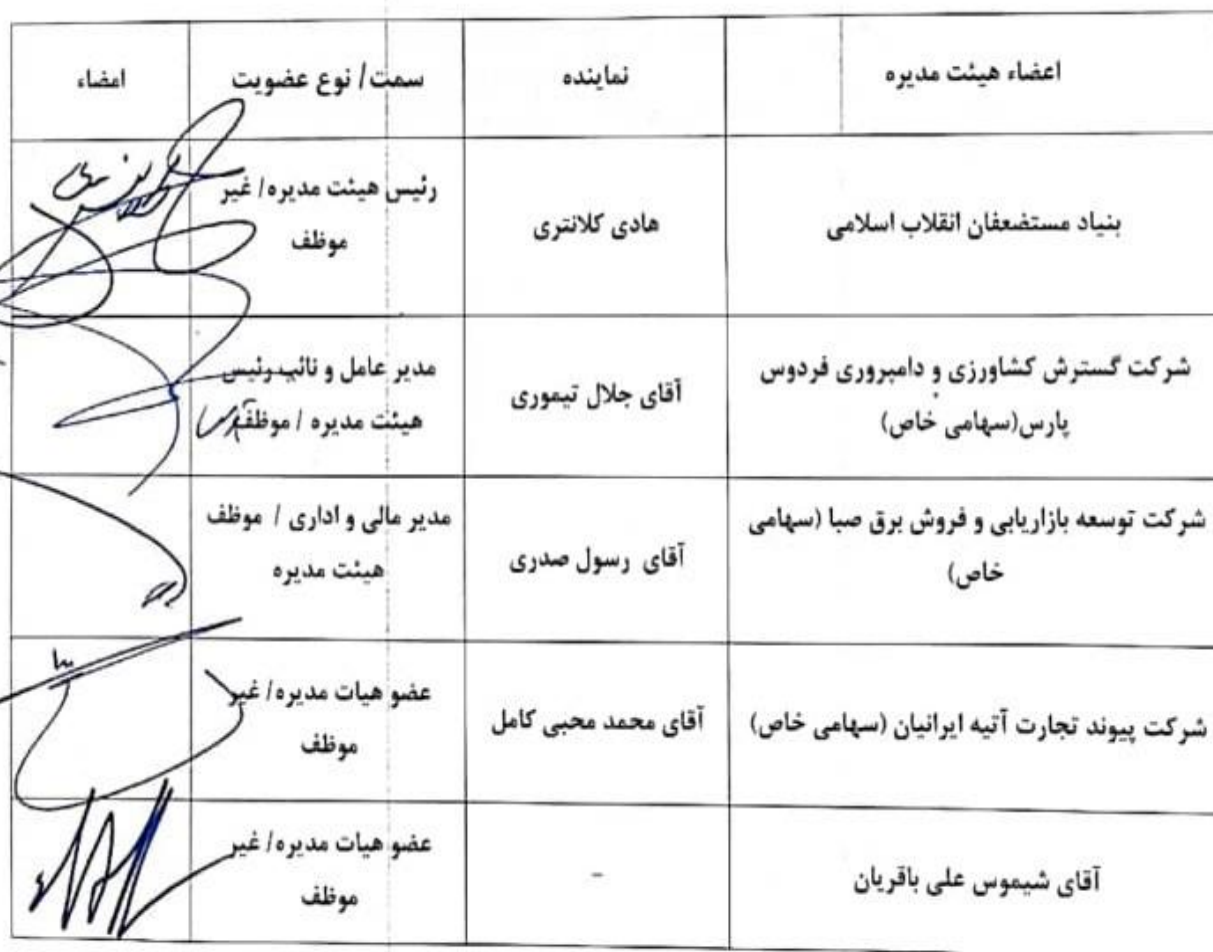 اعضاء هیئت مدیره
نماینده
سمت/ نوع عضویت
امضاء
بنیاد مستضعفان انقلاب اسلامی
هادی کلانتری
رئیس هیئت مدیره/ غیر
موظف
شرکت گسترش کشاورزی و دامپروری فردوس
پارس(سهامی خاص)
آقای جلال تیموری
مدیر عامل و نائب رئیس
هیئت مدیره / موظف
شرکت توسعه بازاریابی و فروش برق صبا (سهامی
خاص)
آقای رسول صدری
مدیر مالی و اداری / موظف
هیئت مدیره
شرکت پیوند تجارت آتیه ایرانیان (سهامی خاص)
آقای محمد محبی کامل
عضو هیات مدیره/ غیر
موظف
آقای شیموس علی باقریان
-
عضو هیات مدیره/ غیر
موظف